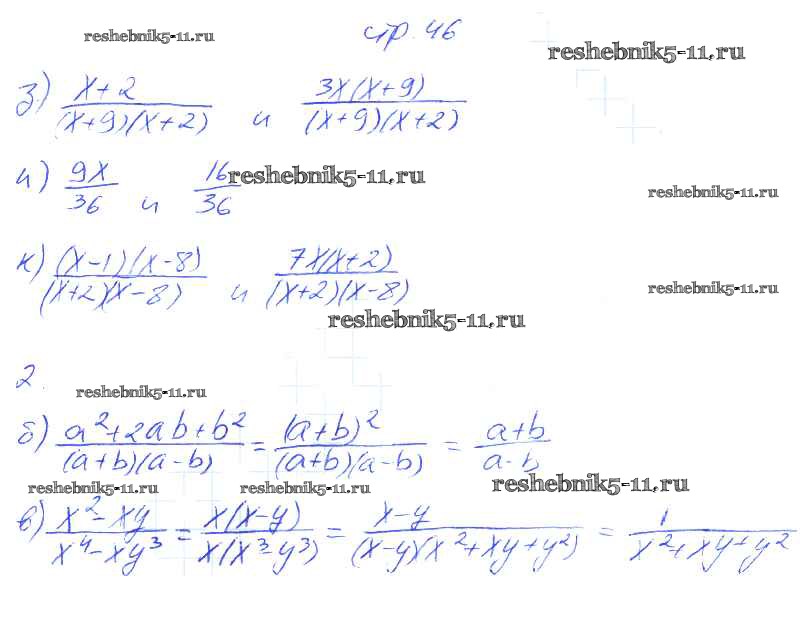 reshebnik5-11.ru стр. 46 reshebnik5-11.ru
з) (x+2)/((x+9)(x+2)) и (3x(x+9))/((x+9)(x+2))
и) 9x/36 и 16/36 reshebnik5-11.ru reshebnik5-11.ru
к) ((x-1)(x-8))/((x+2)(x-8)) и (7x(x+2))/((x+2)(x-8)) reshebnik5-11.ru
reshebnik5-11.ru
2. reshebnik5-11.ru
б) (a²+2ab+b²)/((a+b)(a-b)) = (a+b)²/((a+b)(a-b)) = (a+b)/(a-b)
reshebnik5-11.ru reshebnik5-11.ru reshebnik5-11.ru
в) (x²-xy)/(x⁴-xy³) = (x(x-y))/(x(x³-y³)) = (x-y)/((x-y)(x²+xy+y²)) = 1/(x²+xy+y²)